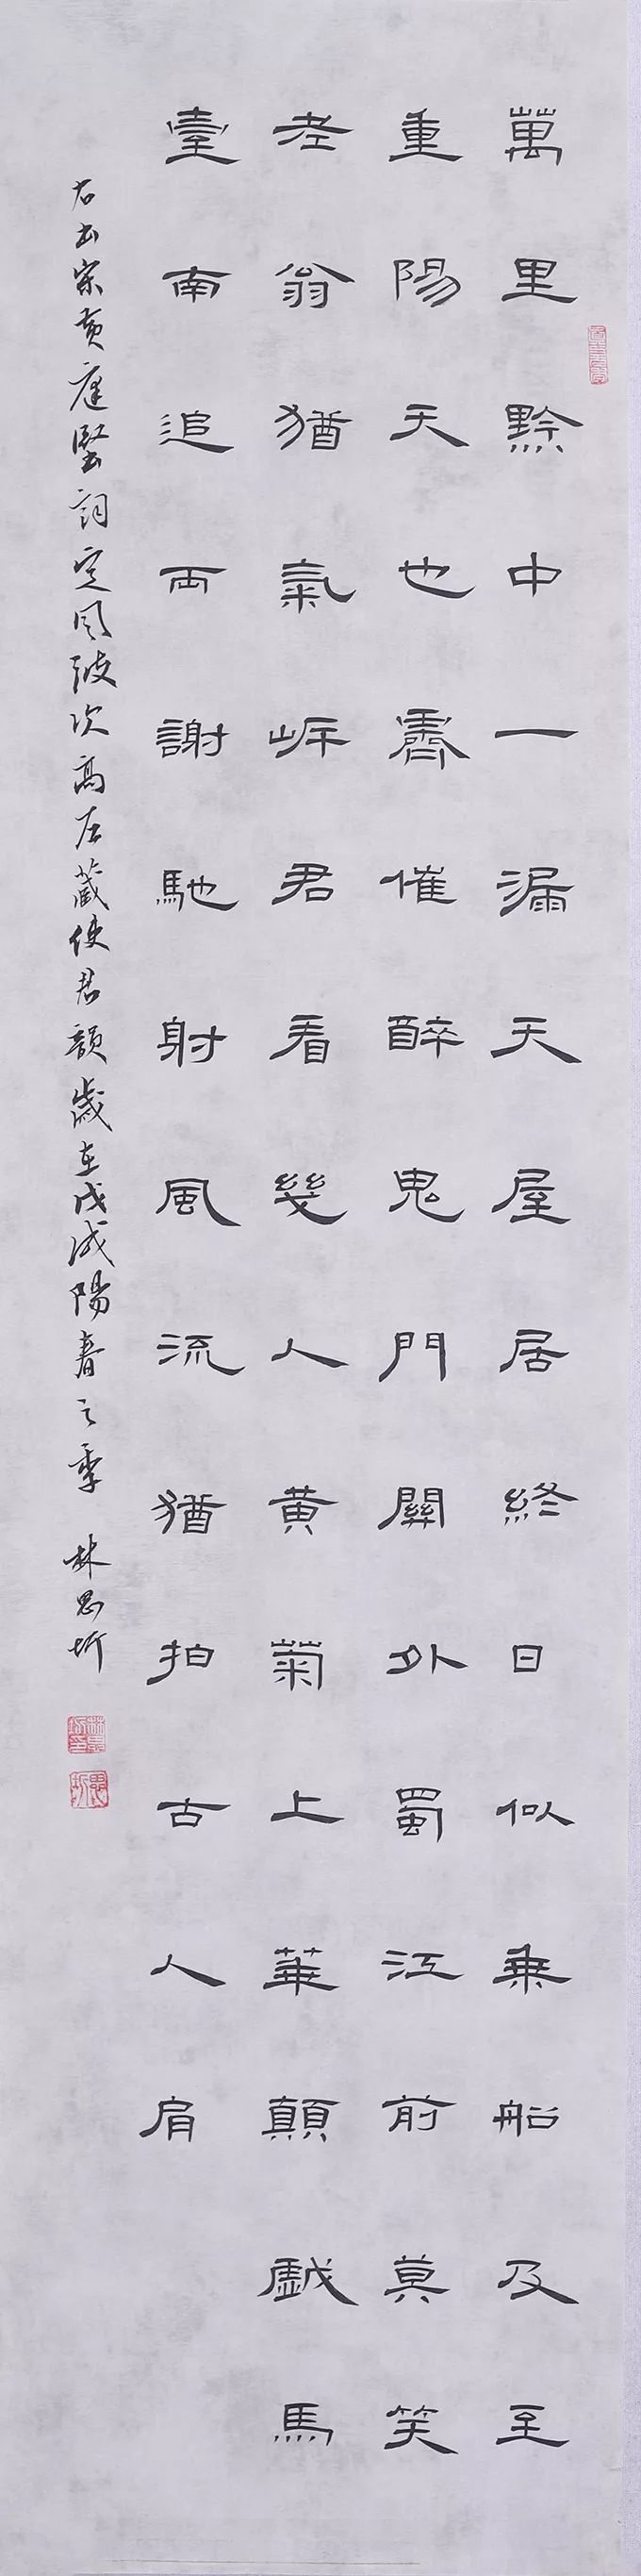 萬里黔中一漏天屋居終日似乘船及至
重陽天也霽催醉鬼門關外蜀江前莫笑
老翁猶氣岸君看幾人黄菊上華顛戲馬
臺南追两謝馳射風流猶拍古人肩
右書宋黄庭堅詞定風波次高左藏使君韻歲在戊戌陽春之季 林思圻